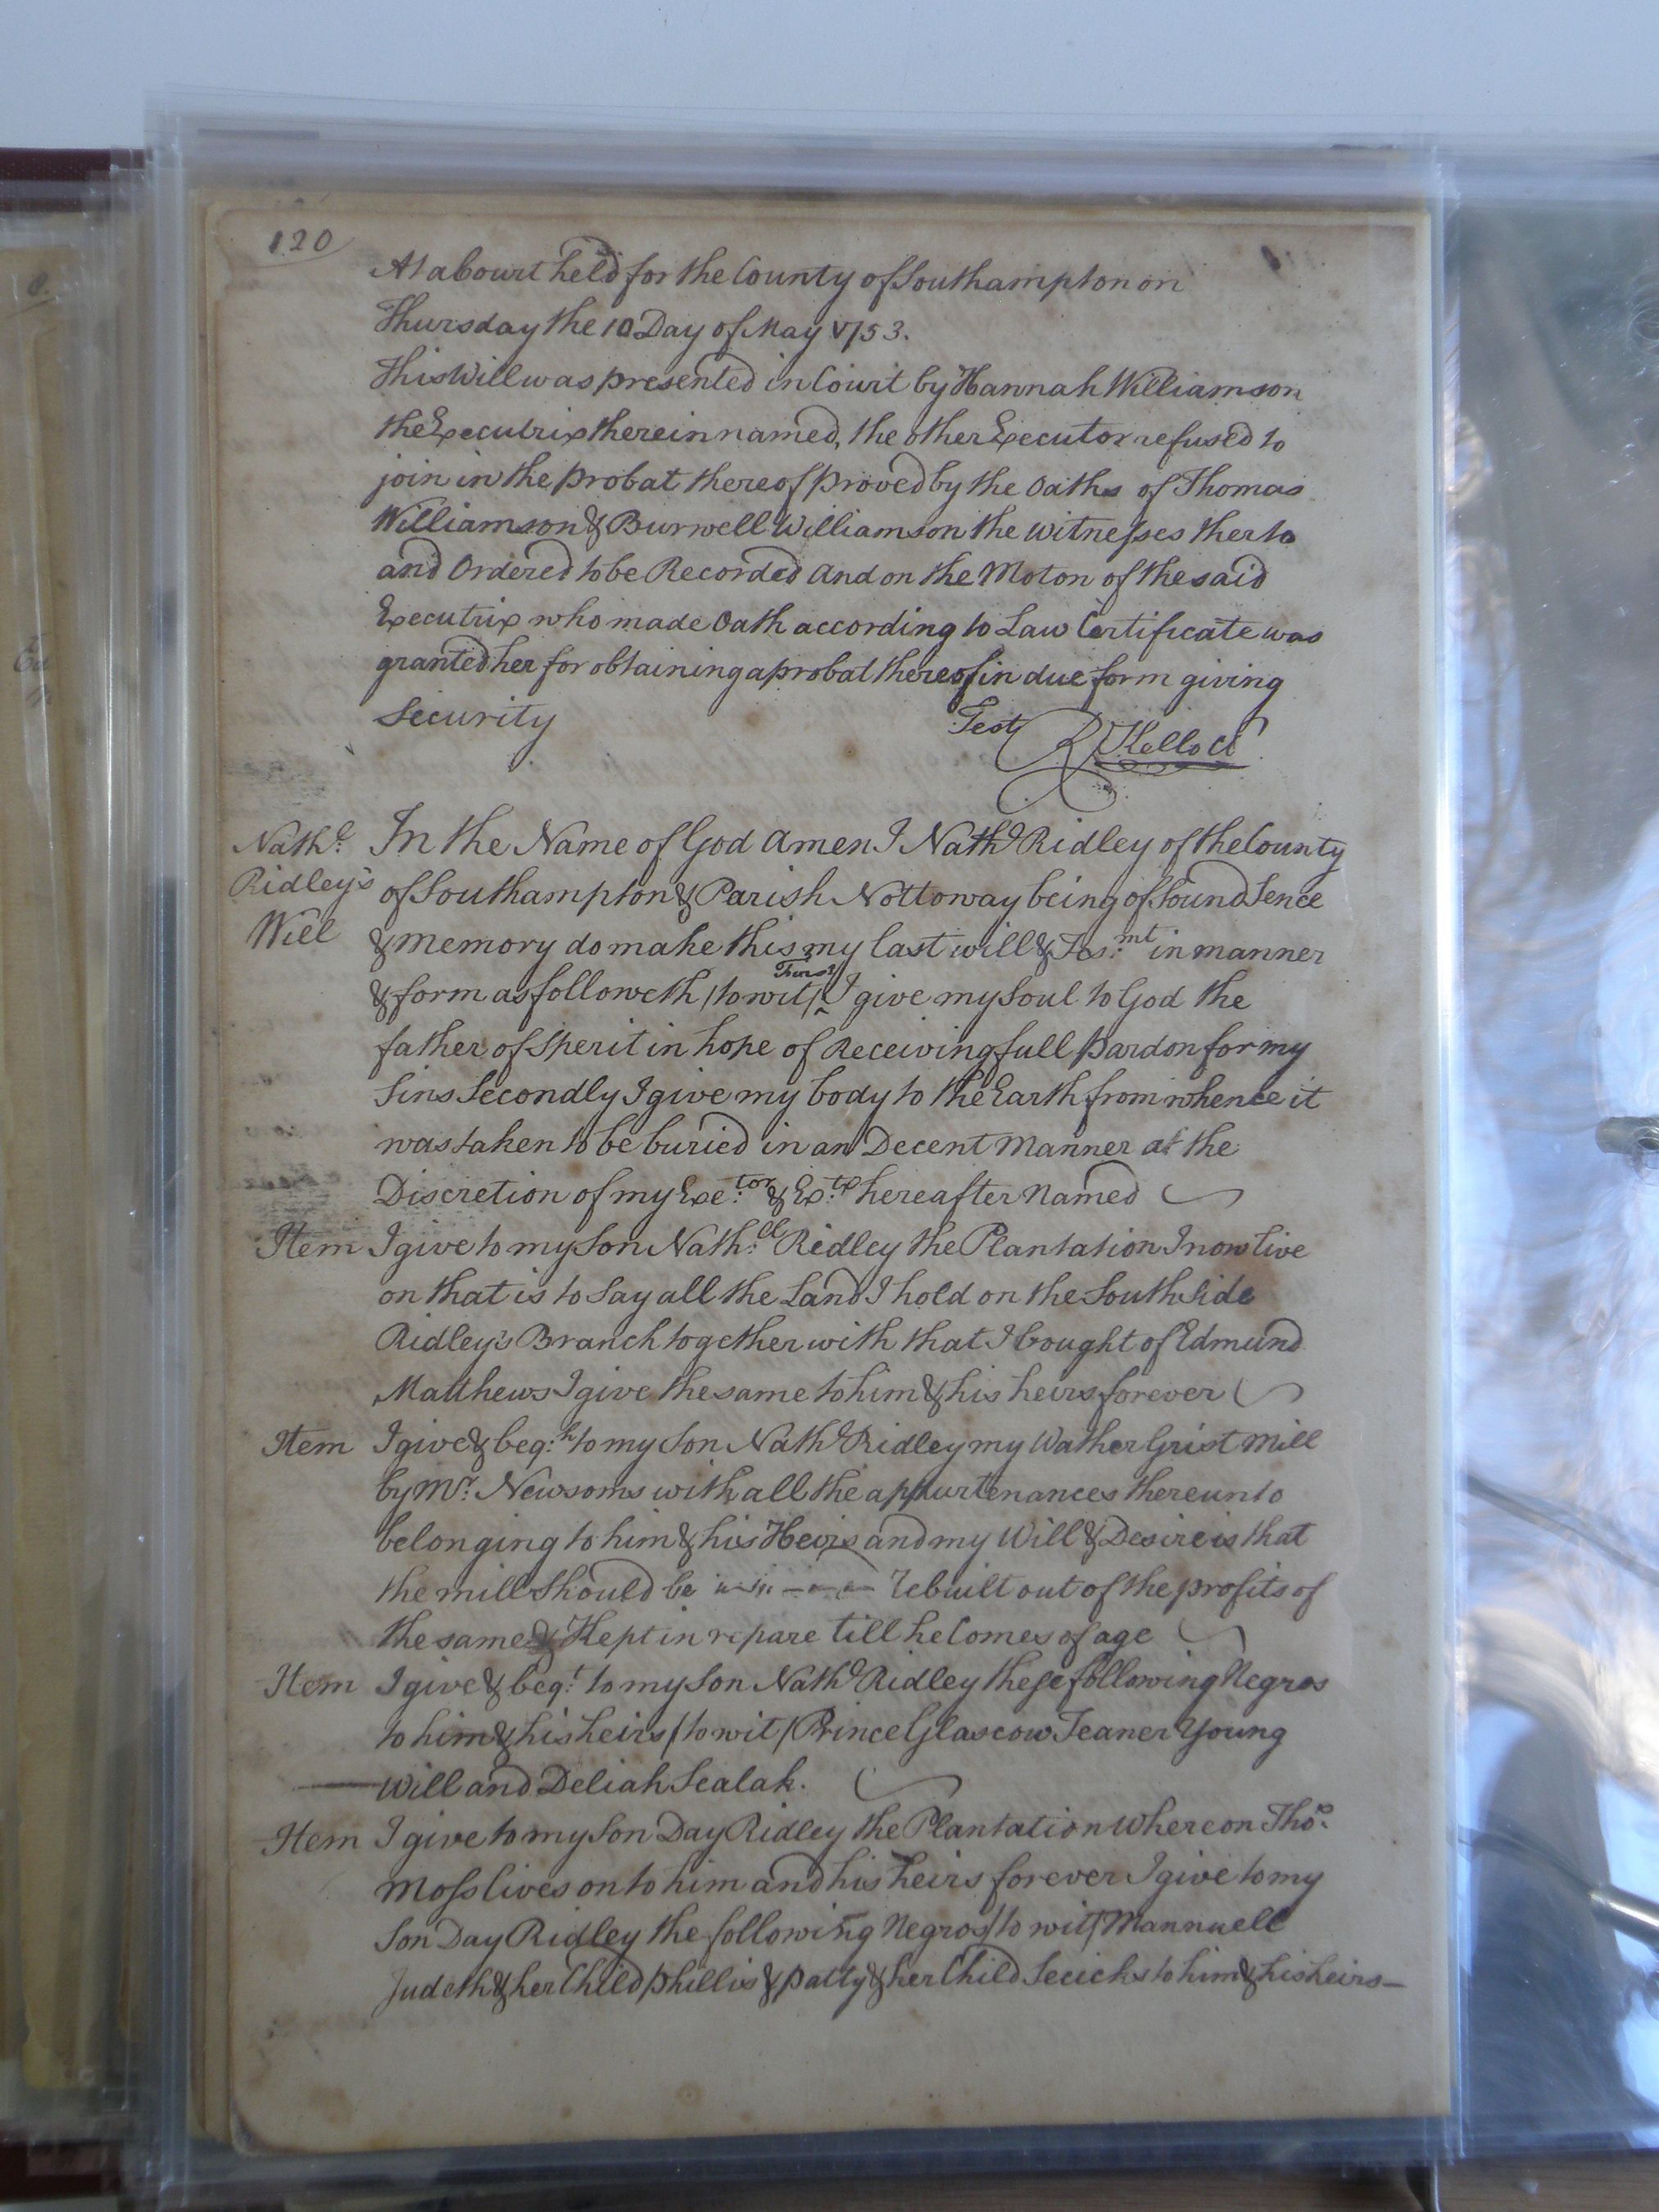 120
At a Court held for the County of Southampton on
Thursday the 10 Day of May 1753.
This Will was presented in Court by Hannah Williamson
the Executrix therein named, the other Executor refused to
join in the probat thereof proved by the Oaths of Thomas
Williamson & Burwell Williamson the witnesses therto
and Ordered to be Recorded and on the Moton of the said
Executrix who made Oath according to Law Certificate was
granted her for obtaining a probat thereof in due form giving
Security Test R Kello Cl
Nathl. Ridley's Will
In the Name of God Amen I Nathl Ridley of the County
of Southampton & Parish Nottoway being of Sound Sence
& Memory do make this my last will & Tes:mt in manner
& form as followeth / to wit / First I give my Soul to God the
father of Sperit in hope of Receiving full pardon for my
Sins Secondly I give my body to the Earth from whence it
was taken to be buried in an Decent Manner at the
Discretion of my Exe:tor & Ex:tx hereafter Named
Item I give to my Son Nath:ll Ridley the Plantation I now live
on that is to Say all the Land I hold on the South Side
Ridley's Branch together with that I bought of Edmund
Matthews I give the same to him & his heirs forever
Item I give & beq:h to my Son Nathl Ridley my Wather Grist Mill
by Mr. Newsoms with all the appurtenances thereunto
belonging to him & his Heirs and my Will & Desire is that
the mill Should be rebuilt out of the profits of
the same & Kept in repare till he Comes of age
Item I give & beq:t to my Son Nathl Ridley these following Negros
to him & his heirs / to wit / Prince Glascow Jeaner Young
Will and Deliah Sealah.
Item I give to my Son Day Ridley the Plantation Whereon Thos.
Moss lives on to him and his heirs forever I give to my
Son Day Ridley the following Negros / to wit / Mannuell
Judeth & her Child phillis & patty & her Child to him & his heirs—